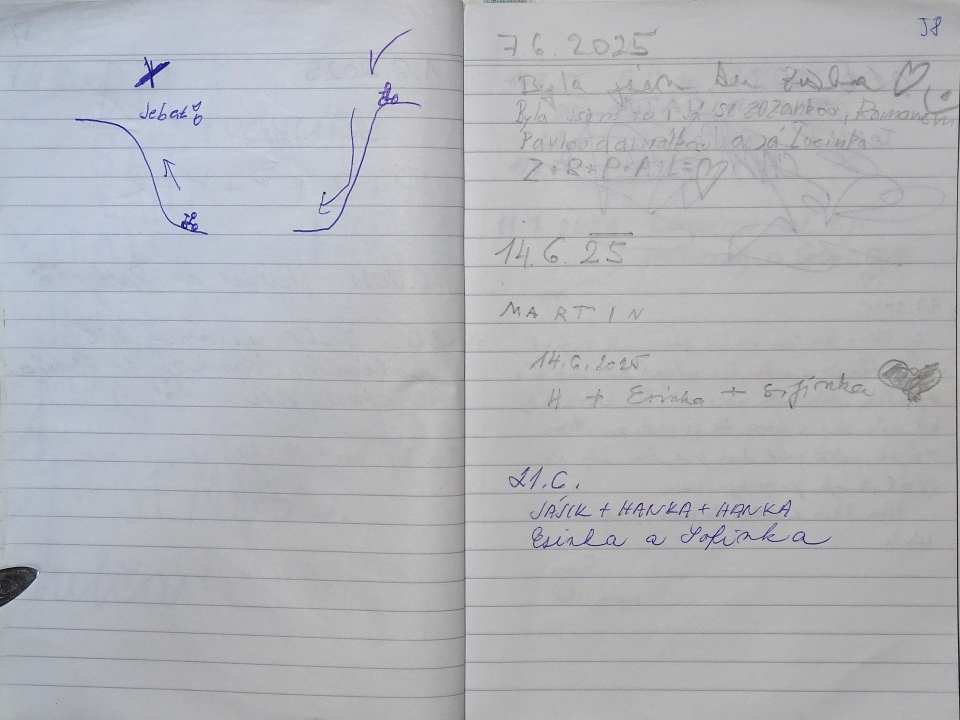 Jebat
J8
7.6.2025
Byla jsem
Byla jsem to i já se Zuzankou,
a já Lucinka
Z+R+P+A+L=
14.6.25
MARTIN
14.6.2025
H + Esinka + Sofinka
21.6.
JÁSIK + HANKA + HANKA
Esinka a Sofinka